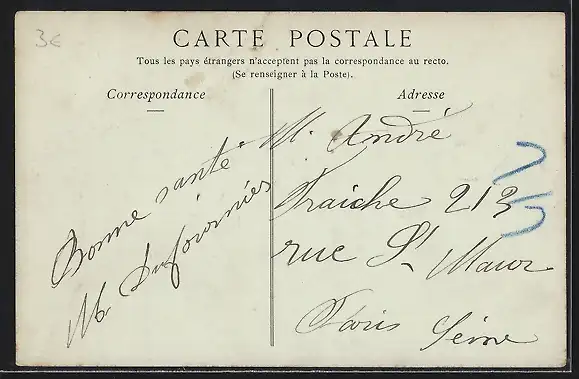 3€
CARTE POSTALE
Tous les pays étrangers n'acceptent pas la correspondance au recto.
(Se renseigner à la Poste).
Correspondance
Adresse
Bonne santé
M. Dufournies
M. André
Fraiche 213
rue St Maur
Paris Seine